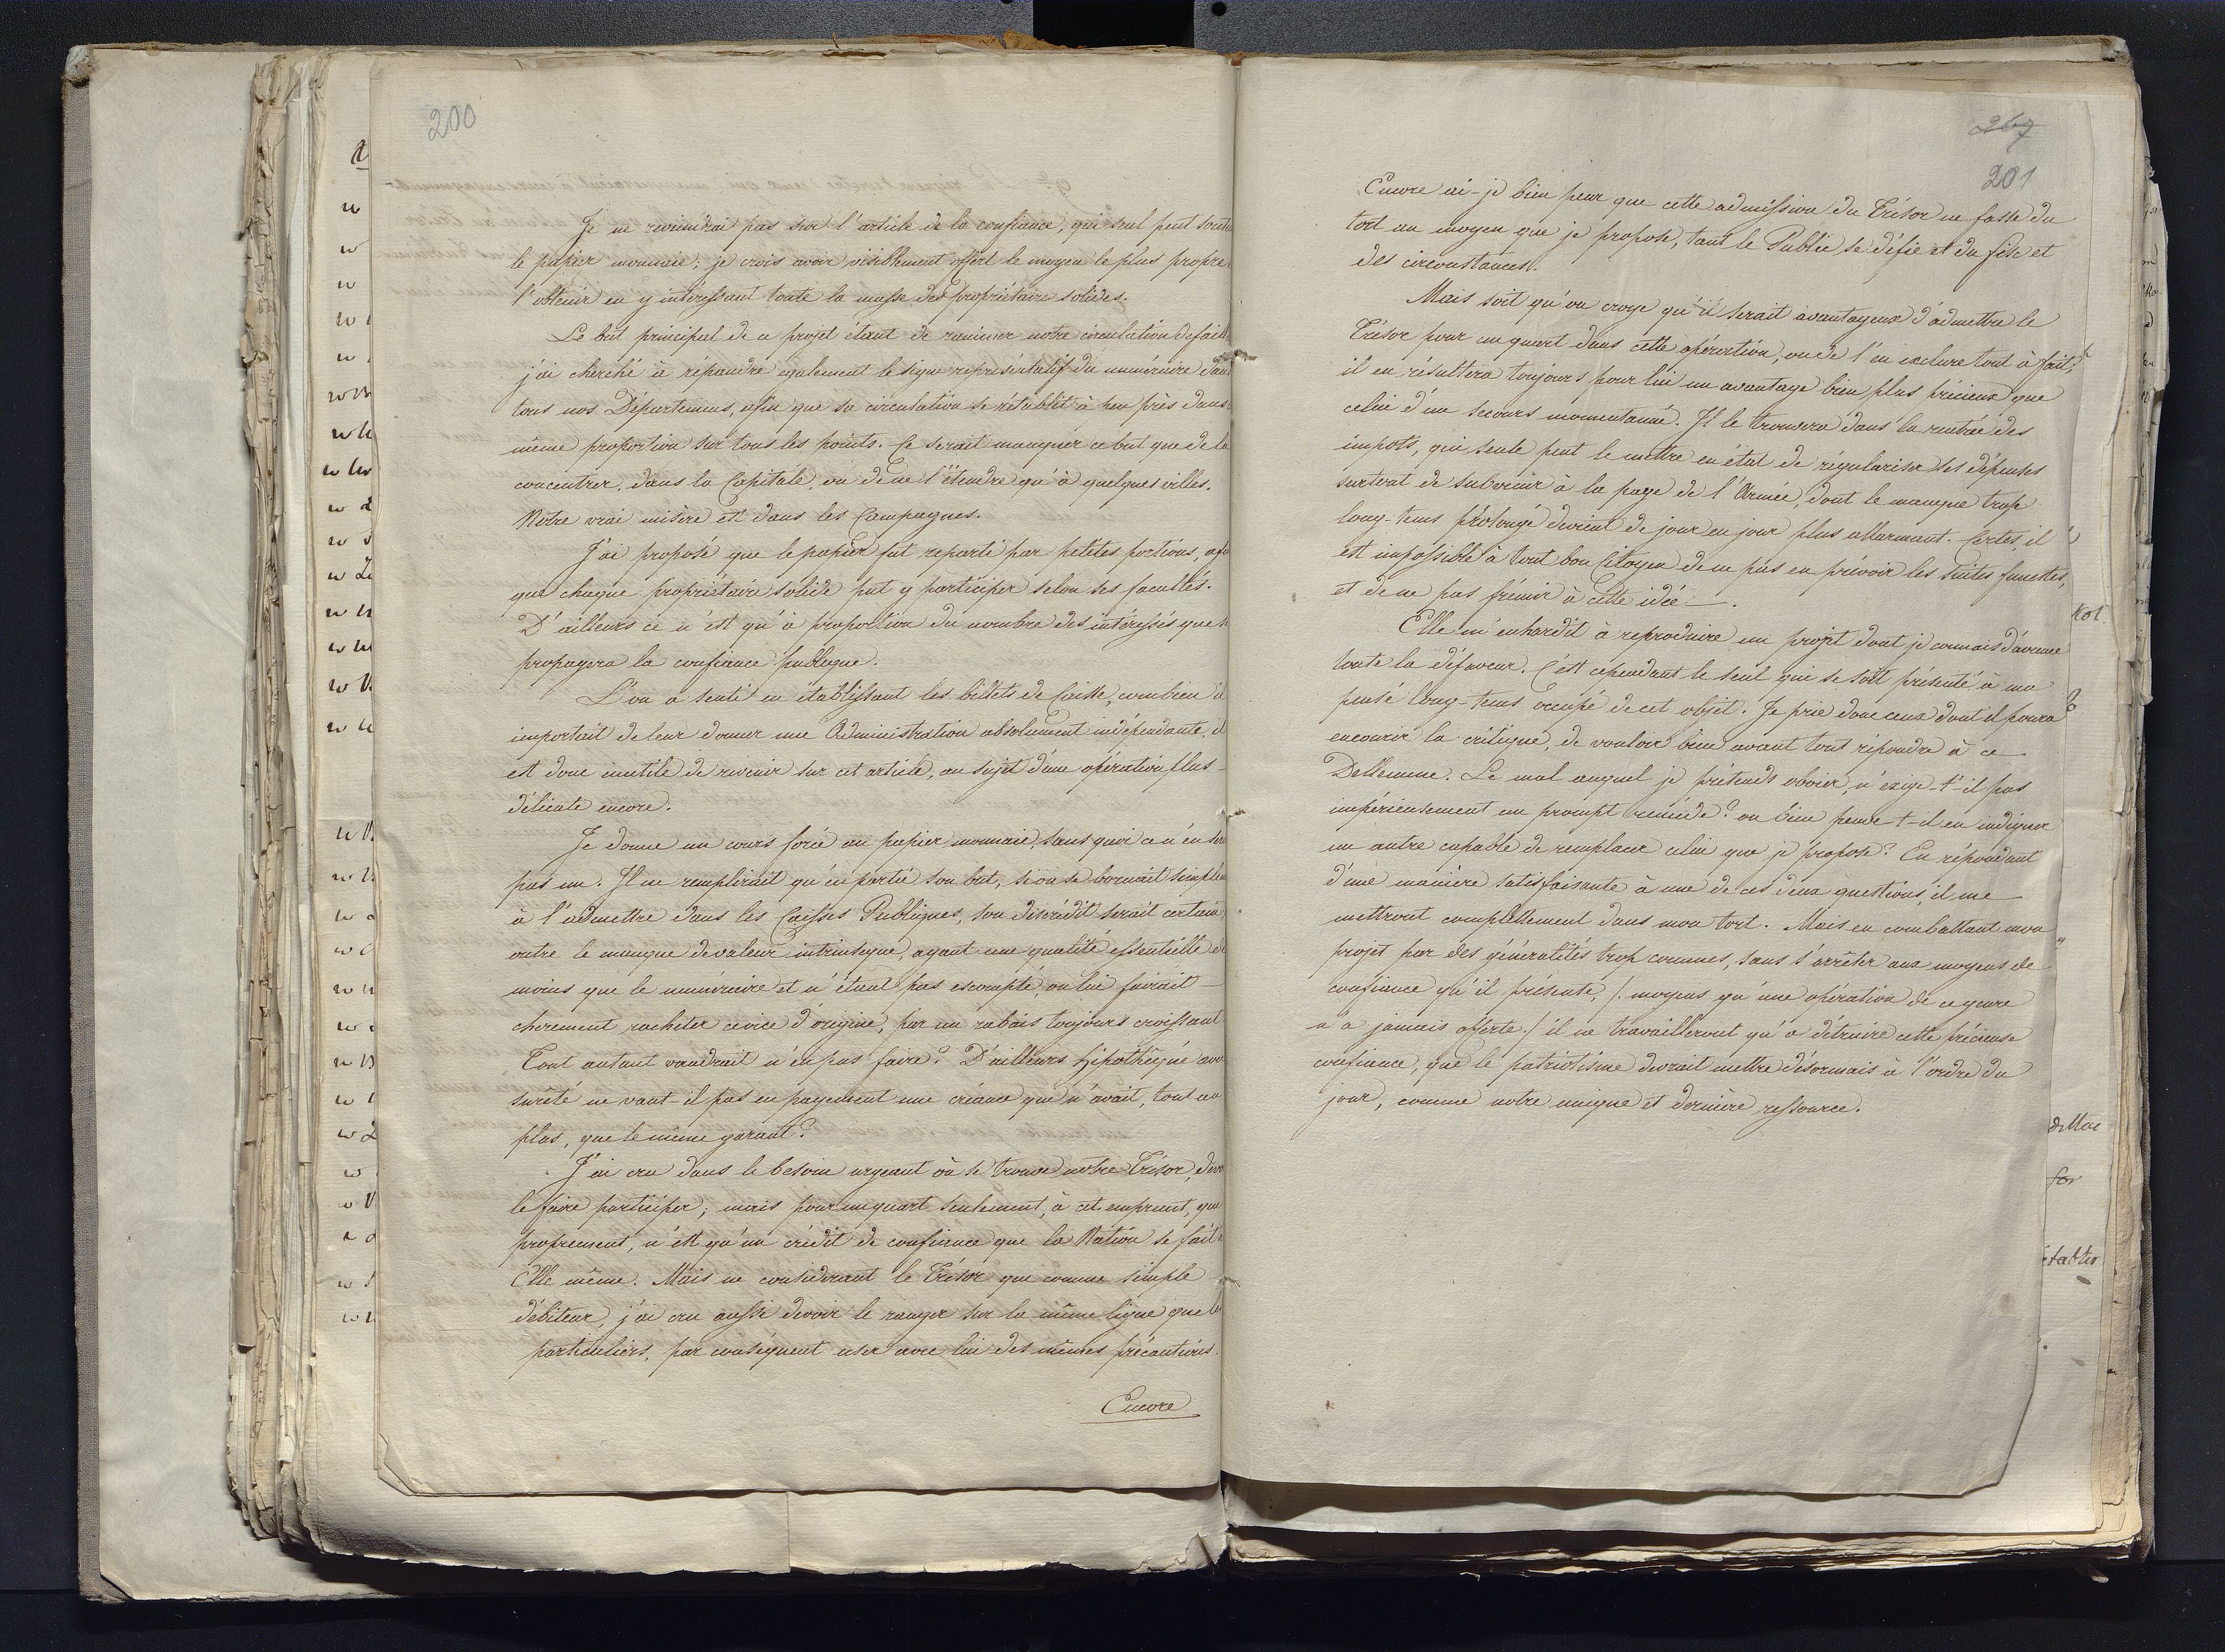 200
Je ne reviendrai pas sur l'article de la confiance, qui seul peut soute
le papier monnaie; je crois avoir visiblement offert le moyen le plus propre
l'obtenir en y intéressant toute la masse des propriétaires solides.
Le but principal de ce projet étant de ranimer notre circulation defaill
j'ai cherché à répandre également le signe représentatif du numéraire dans
tous nos Départemens, afin que sa circulation se rétablit à peu près dans
même proportion sur tous les points. Ce serait manquer ce but que de la
concentrer, dans la Capitale, ou de ne l'étendre qu'à quelques villes.
Notre vrai misère est dans les Campagnes.
J'ai proposé que le papier fut reparti par petites portions, afi
que chaque propriétaire solide put y participer selon ses facultés.
D'ailleurs ce n'est qu'à proportion du nombre des intéressés que s
propagera la confiance publique.
L'on a senti en établissant les billets de Caisse, combien il
importait de leur donner une Administration absolument indépendante, il
est donc inutile de revenir sur cet article, au sujet d'une opération plus
délicate encore.
Je donne un cours forcé au papier monnaie, sans quoi ce n'en sera
pas un. Il ne remplirait qu'en partie son but, si on se bornait simplem
à l'admettre dans les Caisses Publiques, son discrédit serait certain,
outre le manque de valeur intrinseque, ayant une qualité essentielle de
moins que le numéraire et n'étant pas escompté, on lui ferait
cherement racheter ce vice d'origine, par un rabais toujours croissant
Tout autant vaudrait n'en pas faire? D'ailleurs Hipothéqué avec
sûreté ne vaut-il pas en payement une créance qui n'avait, tout au
plus, que le même garant?
J'ai cru dans le besoin urgeant où se trouve notre Trésor, devo
le faire participer; mais pour un quart seulement, à cet emprunt, que
proprement, n'est qu'un crédit de confiance que la Nation se fait à
Elle même. Mais ne considerant le Trésor que comme simple
débiteur, j'ai cru aussi devoir le ranger sur la même ligne que le
particuliers, par conséquent user avec lui des mêmes précautions.
Encore
267
201
Encore ai-je bien peur que cette admission du Trésor ne fasse du
tort au moyen que je propose, tant le Public se défie et du fisc et
des circonstances.
Mais soit qu'on croye qu'il serait avantageux d'admettre le
Trésor pour un quart dans cette opération, ou de l'en exclure tout à fait;
il en résultera toujours pour lui un avantage bien plus précieux que
celui d'un secours momentanné. Il le trouvera dans la rentrée des
impots, qui seule peut le mettre en état de régulariser ses dépenses
surtout de subvenir à la paye de l'Armée, dont le manque trop
long-tems prolongé devient de jour en jour plus allarmant. Certes, il
est impossible à tout bon Citoyen de ne pas en prévoir les suites funestes,
et de ne pas frémir à cette idée —.
Elle m'enhardit à reproduire un projet dont je connais d'avance
toute la défaveur. C'est cependant le seul qui se soit présenté à ma
pensé long-tems occupé de cet objet. Je prie donc ceux dont il pourra
encourir la critique, de vouloir bien avant tout répondre à ce
Dellemme. Le mal auquel je prétends obvier, n'exige-t-il pas
impérieusement un prompt remède? ou bien peuve-t-il en indiquer
un autre capable de remplacer celui que je propose? En répondant
d'une manière satisfaisante à une de ces deux questions, il me
mettront complettement dans mon tort. Mais en combattant mon
projet par des généralités trop connues, sans s'arrêter aux moyens de
confiance qu'il présente, /: moyens qu'une opération de ce genre
n'a jamais offerte :/ il ne travailleront qu'à détruire cette précieuse
confiance, que le patriotisme devrait mettre désormais à l'ordre du
jour, comme notre unique et dernière ressource.